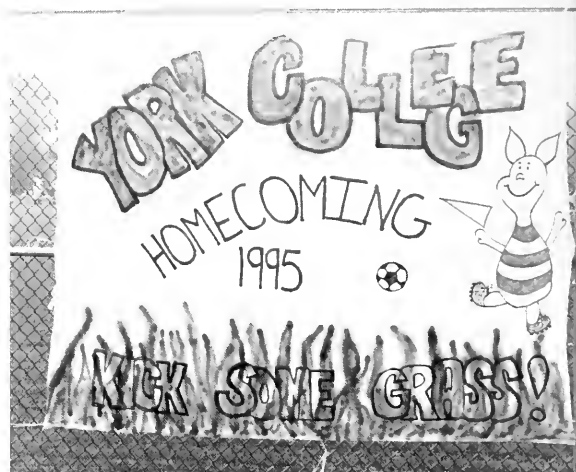 YORK COLLEGE
HOMECOMING
1995
KICK SOME GRASS!